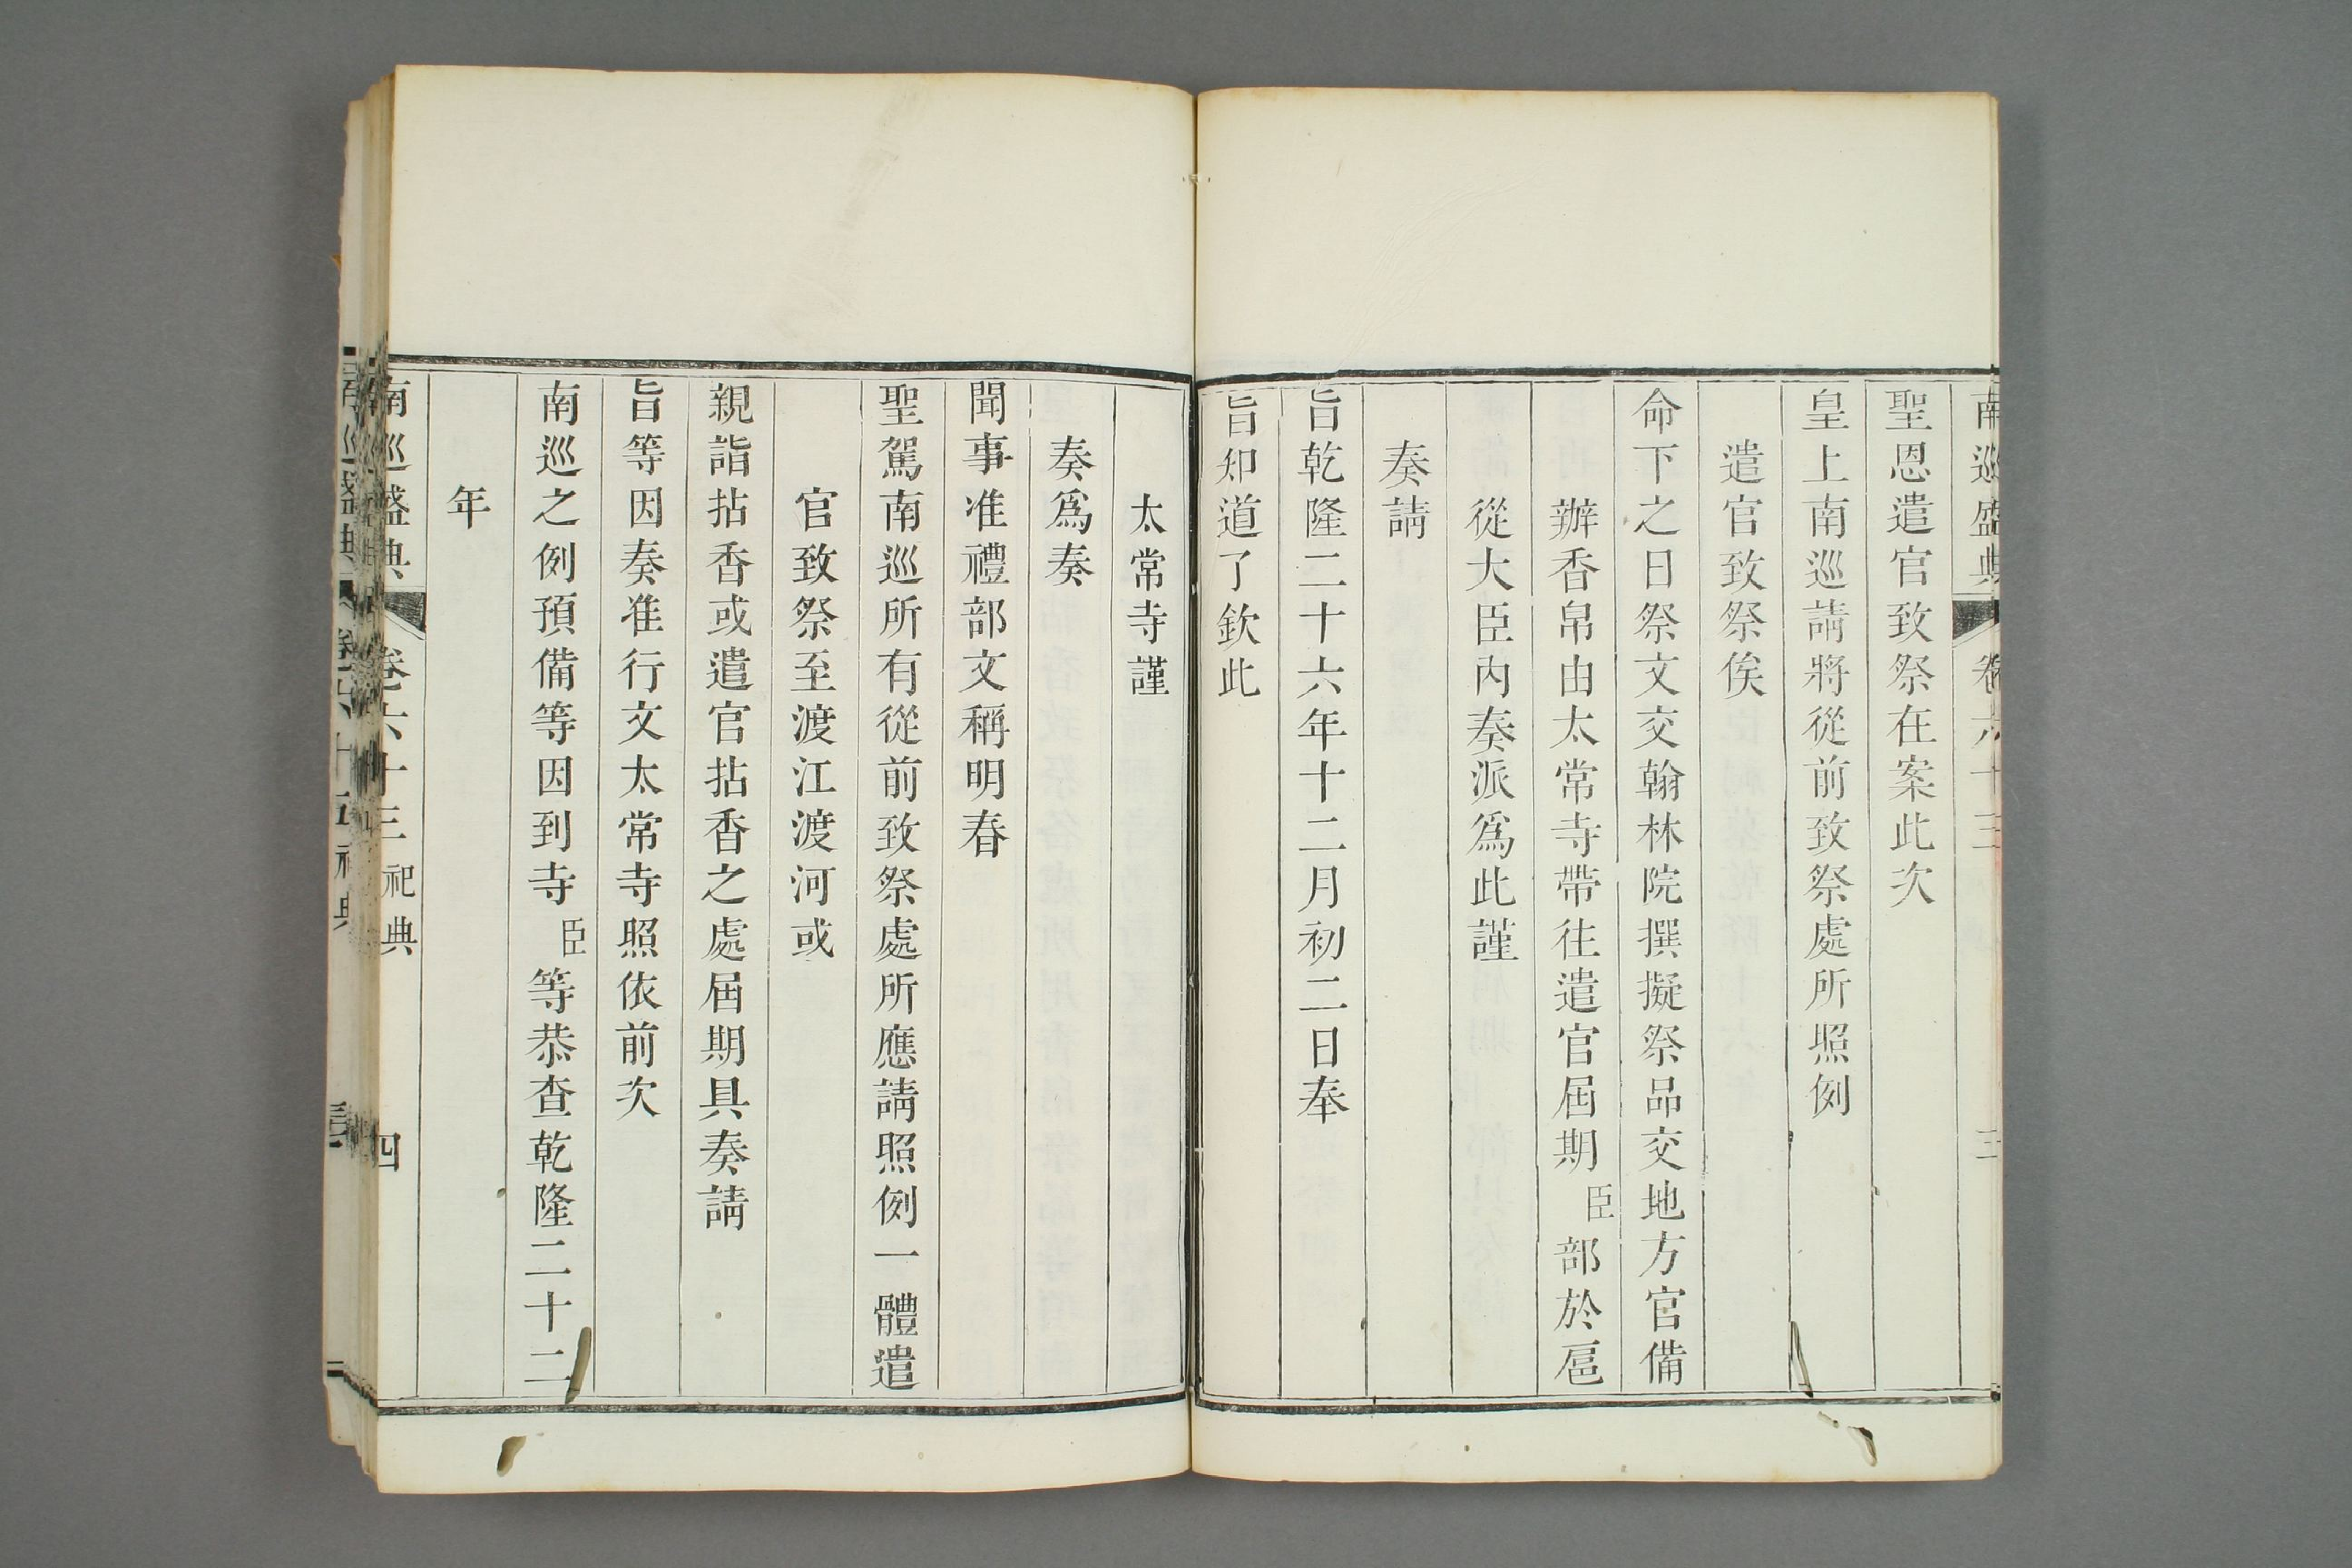 南巡盛典 卷六十三 三
聖恩遣官致祭在案此次
皇上南巡請將從前致祭處所照例
遣官致祭俟
命下之日祭文交翰林院撰擬祭品交地方官備
辦香帛由太常寺帶往遣官屆期臣部於扈
從大臣内奏派爲此謹
奏請
旨乾隆二十六年十二月初二日奉
旨知道了欽此
太常寺謹
奏爲奏
聞事准禮部文稱明春
聖駕南巡所有從前致祭處所應請照例一體遣
官致祭至渡江渡河或
親詣拈香或遣官拈香之處屆期具奏請
旨等因奏准行文太常寺照依前次
南巡之例預備等因到寺臣等恭查乾隆二十二
年
南巡盛典 卷六十三 祀典 四